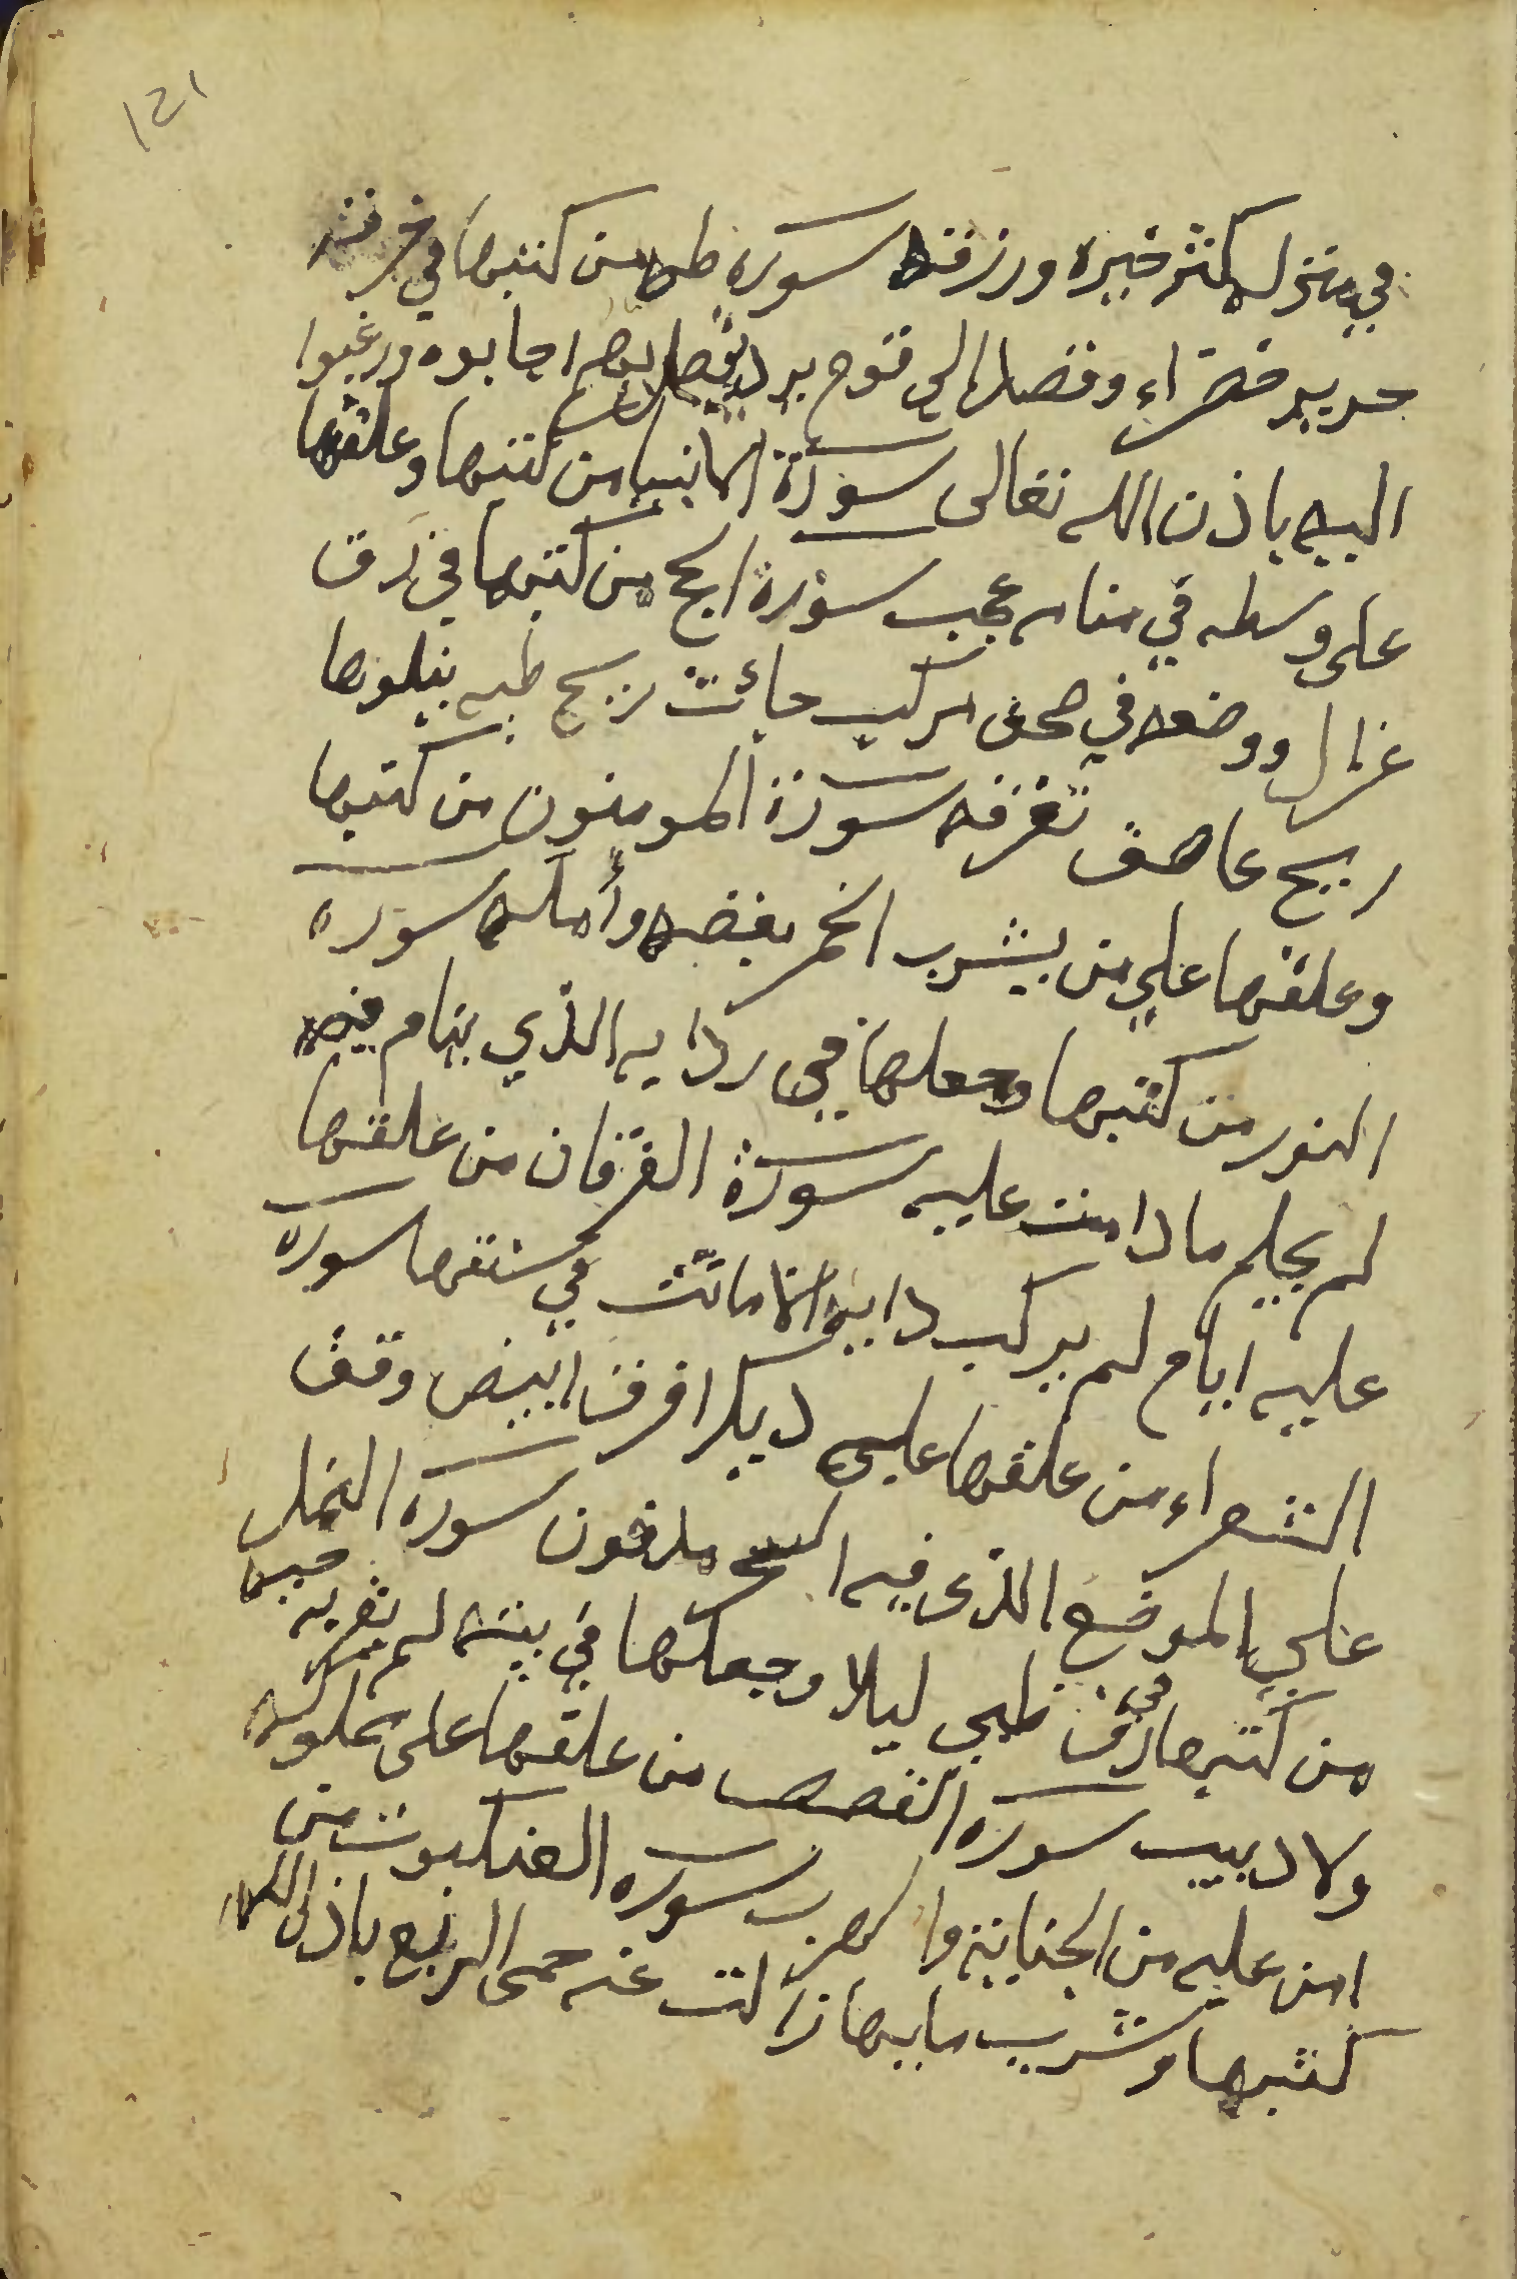 121
في منزله كثر خيره ورزقه سوره طه من كتبها في خرقة
حرير خضراء وقصد الي قوم يريد يصلهم اجابوه ورغبوا
اليه باذن الله تعالى سورة الانبيا من كتبها وعلقها
على وسطه في منامه عجب سورة الحج من كتبها في رق
غزال ووضعه في صحن مركب جائت ريح طيبه يتلوها
ريح عاصف تغرقه سورة المومنون من كتبها
وعلقها علي من يشرب الخمر بغضه وأمله سوره
النور من كتبها وجعلها في ردايه الذي ينام فيه
لم يحلم ما دامت عليه سورة الفرقان من علقها
عليه ايام لم يركب دابه الا ماتت في سنتها سوره
الشعراء من علقها على ديك افرق ابيض وقف
علي الموضع الذى فيه السحر مدفون سوره النمل
من كتبها في رق ظبي ليلا وجعلها في بيته لم يقربه حيه
ولا دبيب سوره القصص من علقها على مملوكه
امن عليه من الجنابة والهرب سوره العنكبوت من
كتبها وشرب مايها زالت عنه حمى الربع باذن الله